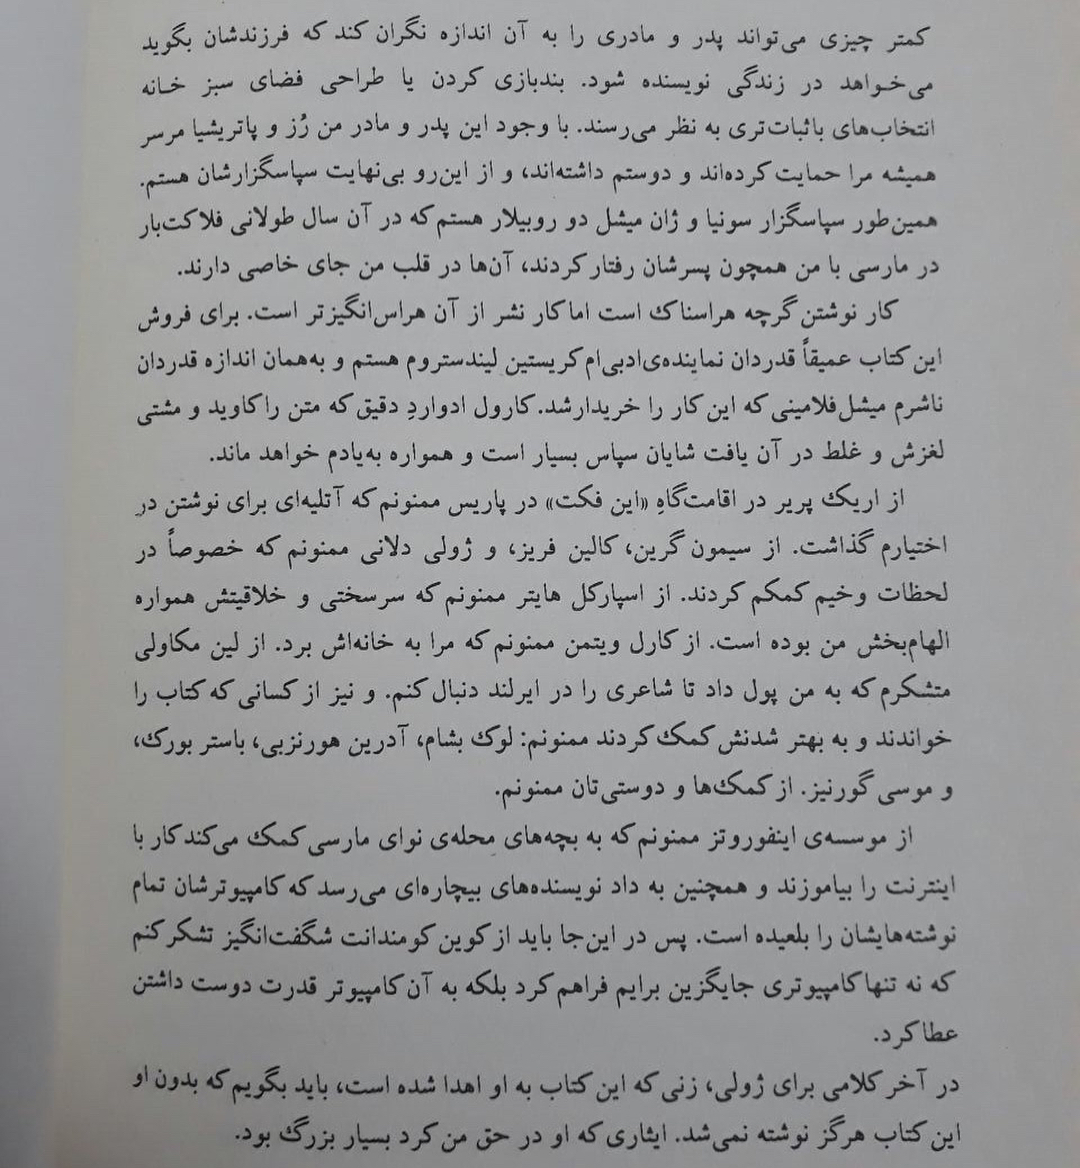 کمتر چیزی می‌تواند پدر و مادری را به آن اندازه نگران کند که فرزندشان بگوید
می‌خواهد در زندگی نویسنده شود. بندبازی کردن یا طراحی فضای سبز خانه
انتخاب‌های باثبات‌تری به نظر می‌رسند. با وجود این پدر و مادر من رُز و پاتریشیا مرسر
همیشه مرا حمایت کرده‌اند و دوستم داشته‌اند، و از این‌رو بی‌نهایت سپاسگزارشان هستم.
همین‌طور سپاسگزار سونیا و ژان میشل دو روبیلار هستم که در آن سال طولانی فلاکت‌بار
در مارسی با من همچون پسرشان رفتار کردند، آن‌ها در قلب من جای خاصی دارند.
کار نوشتن گرچه هراسناک است اما کار نشر از آن هراس‌انگیزتر است. برای فروش
این کتاب عمیقاً قدردان نماینده‌ی ادبی‌ام کریستین لیندستروم هستم و به‌همان اندازه قدردان
ناشرم میشل فلامینی که این کار را خریدار شد. کارول ادواردِ دقیق که متن را کاوید و مشتی
لغزش و غلط در آن یافت شایان سپاس بسیار است و همواره به‌یادم خواهد ماند.
از اریک پریر در اقامت‌گاهِ «این فکت» در پاریس ممنونم که آتلیه‌ای برای نوشتن در
اختیارم گذاشت. از سیمون گرین، کالین فریز، و ژولی دلانی ممنونم که خصوصاً در
لحظات وخیم کمکم کردند. از اسپارکل هایتر ممنونم که سرسختی و خلاقیتش همواره
الهام‌بخش من بوده است. از کارل ویتمن ممنونم که مرا به خانه‌اش برد. از لین مکاولی
متشکرم که به من پول داد تا شاعری را در ایرلند دنبال کنم. و نیز از کسانی که کتاب را
خواندند و به بهتر شدنش کمک کردند ممنونم: لوک بشام، آدرین هورنزبی، باستر بورک،
و موسی گورنیز. از کمک‌ها و دوستی‌تان ممنونم.
از موسسه‌ی اینفوروتز ممنونم که به بچه‌های محله‌ی نوای مارسی کمک می‌کند کار با
اینترنت را بیاموزند و همچنین به داد نویسنده‌های بیچاره‌ای می‌رسد که کامپیوترشان تمام
نوشته‌هایشان را بلعیده است. پس در این‌جا باید از کوین کومندانت شگفت‌انگیز تشکر کنم
که نه تنها کامپیوتری جایگزین برایم فراهم کرد بلکه به آن کامپیوتر قدرت دوست داشتن
عطا کرد.
در آخر کلامی برای ژولی، زنی که این کتاب به او اهدا شده است، باید بگویم که بدون او
این کتاب هرگز نوشته نمی‌شد. ایثاری که او در حق من کرد بسیار بزرگ بود.